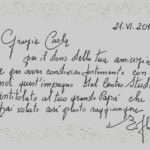 21.VI.201
Grazie Carla
per il dono della tua amicizia
e per aver condiviso fortemente con
quest'impegno del Centro Studi
intitolato al tuo grande Papà che
hai voluto così raggiungere